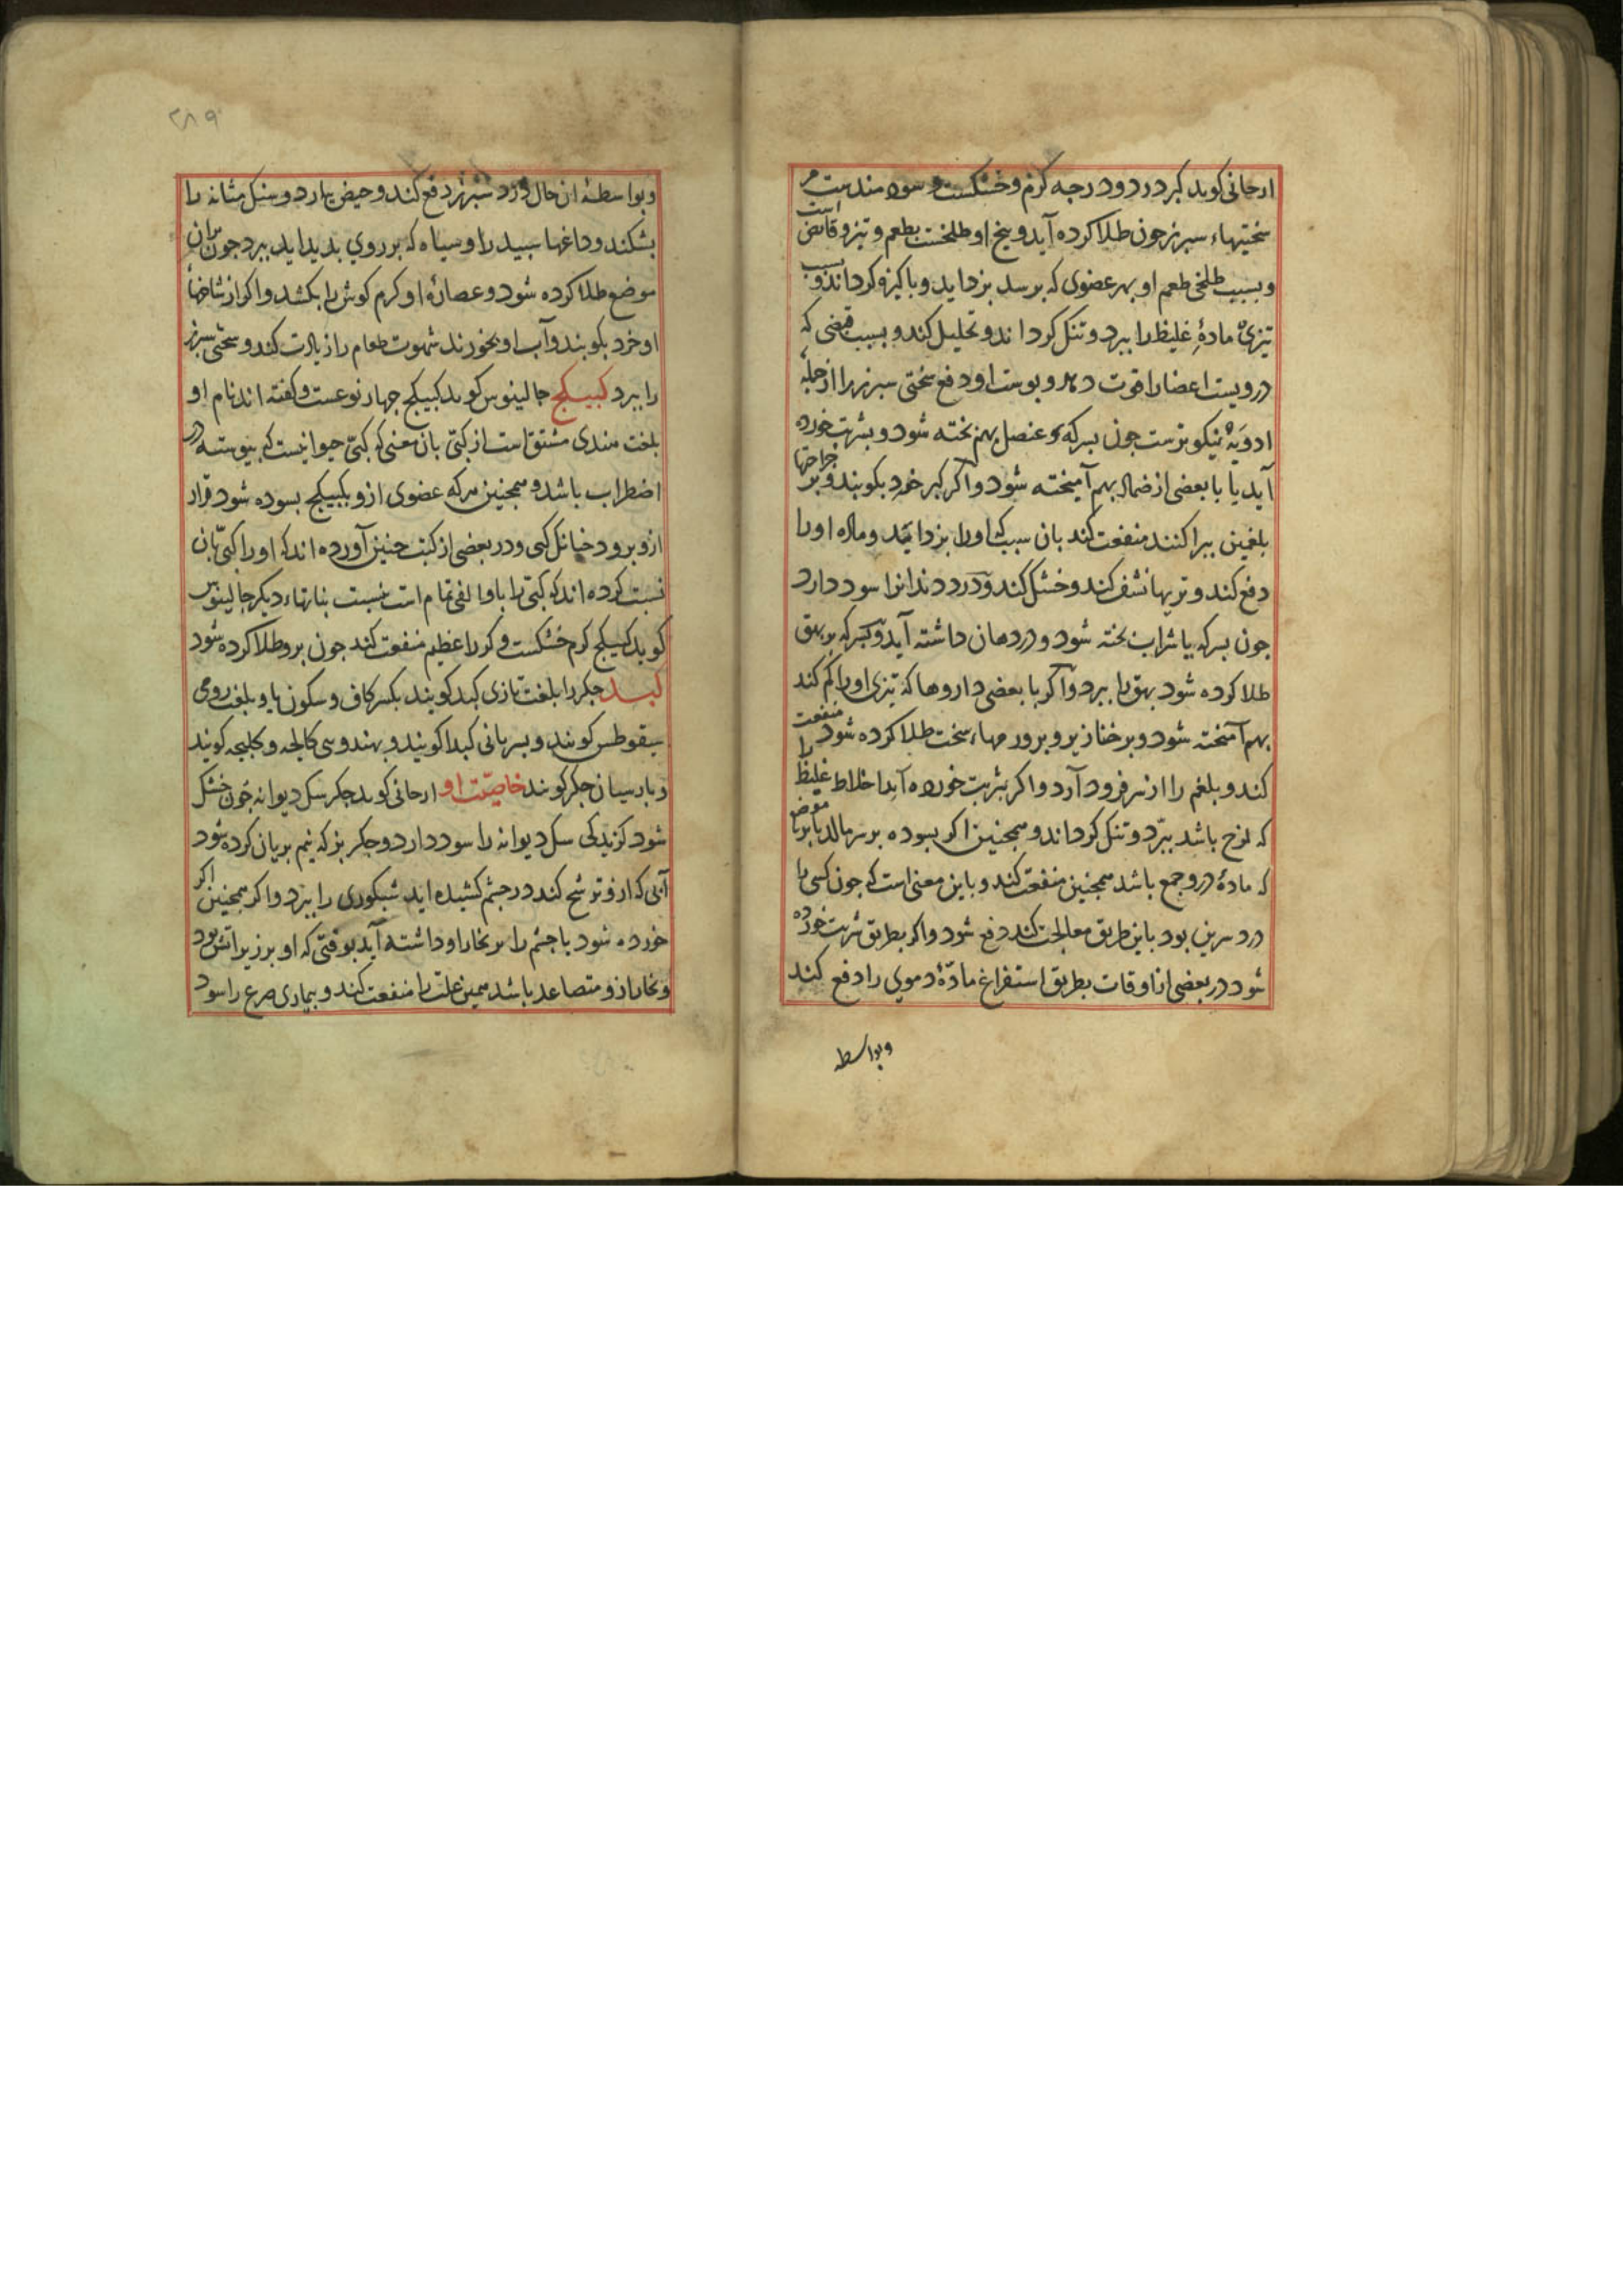 ارجانی کوید کبر در دوم درجه کرم و خشکست و سودمندست مر
سختیهاء سپرز جون طلا کرده آید و بیخ او طلخست بطعم و تیز و قابض است
و بسبب طلخی طعم او بهر عضوی که برسد بزداید و باکیزه کرداند و بسبب
تیزی مادهٔ غلیظ را ببرد و تنک کرداند و تحلیل کند و بسبب قبضی که
دروست اعضا را قوت دهد و بوست او دفع سختی سبرز را از جمله
ادویهٔ نیکوترست جون بسرکه و عنصل بهم بخته شود و بشربت خورده
آید یا با بعضی از ضماد بهم آمیخته شود و اکر کبر خرد بکوبند و بر جراحتها
بلغمین براکنند منفعت کند بان سبب که او را بزداید و ماده او را
دفع کند و تریها نشف کند و خشک کند و درد دندانرا سود دارد
جون بسرکه یا شراب بخته شود و در دهان داشته آید و بسرکه بر بهق
طلا کرده شود بهق را ببرد و اکر با بعضی داروها که تیزی او را کم کند
بهم آمیخته شود و بر خنازیر و بر ورمهاء سخت طلا کرده شود منفعت
کند و بلغم را از سر فرود آرد و اکر بشربت خورده آید اخلاط غلیظ را
که لزج باشد ببرد و تنک کرداند و همجنین اکر بسوده بر سر مالد یا بر موضع
که مادهٔ درو جمع باشد همجنین منفعت کند و باین معنی است که جون کسی را
درد سرین بود باین طریق معالجت کند دفع شود و اکر بطریق شربت خورده
شود در بعضی از اوقات بطریق استفراغ مادّهٔ دموی را دفع کند
و بواسطه
۲۸۹
و بواسطهٔ ان حال درد سبرز دفع کند و حیض بیارد و سنک مثانه را
بشکند و داغها سبید را و سیاه که بر روی بدید اید ببرد جون بران
موضع طلا کرده شود و عصارهٔ او کرم کوش را بکشد و اکر از شاخهاء
او خرد بکوبند و آب او بخورند شهوت طعام را زیادت کند و سختی سبرز
را ببرد کبیکج جالینوس کوید کبیکج جهار نوعست و کفته اند نام او
بلغت هندی مشتق است از کپی بان معنی که کپی حیوانیست که بیوسته در
اضطراب باشد و همجنین هرکه عضوی ازو بکبیکج بسوده شود قرار
ازو برود جنانک کپی و در بعضی از کتب جنین آورده اند که او را کپی بان
نسبت کرده اند که کپی را باوا لفی تمام است بنسبت بنباتهاء دیکر جالینوس
کوید کبیکج کرم خشکست و کر را عظیم منفعت کند جون برو طلا کرده شود
کبد جکر را بلغت تازی کبد کویند بکسر کاف و سکون با و بلغت رومی
سیقوطس کویند و بسریانی کبدا کویند و بهندوسی کالجه و کلیجه کویند
و بارسیان جکر کویند خاصیّت او ارجانی کوید جکر سک دیوانه جون خشک
شود کزیدکی سک دیوانه را سود دارد و جکر بز که نیم بریان کرده شود
آبی که ازو ترشح کند در جشم کشیده اید شبکوری را ببرد و اکر همجنین اکر
خورده شود یا جشم را بر بخار او داشته آید بوقتی که او بر زبر اتش بود
و بخار ازو متصاعد باشد همین علت را منفعت کند و بیماری صرع را سود